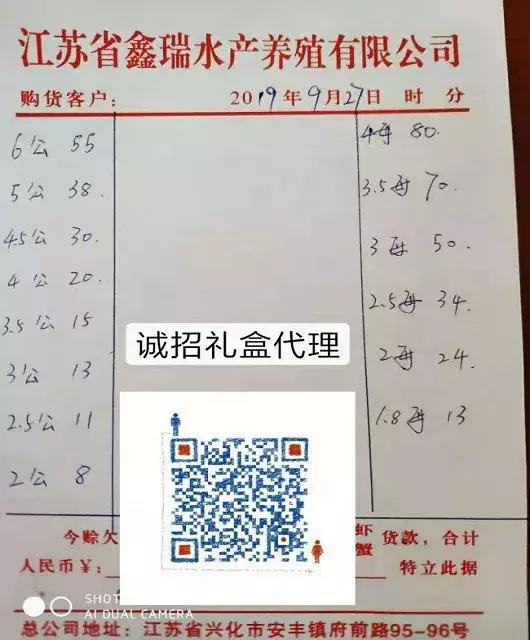 江苏省鑫瑞水产养殖有限公司
购货客户: 2019年9月27日 时 分
6公 55
5公 38.
4.5公 30.
4公 20.
3.5公 15
3公 13
2.5公 11
2公 8
4母 80.
3.5母 70.
3母 50.
2.5母 34.
2母 24.
1.8母 13
诚招礼盒代理
今赊欠
虾
蟹
货款，合计
人民币¥:
特立此据
SHOT
AI DUAL CAMERA
总公司地址: 江苏省兴化市安丰镇府前路95-96号